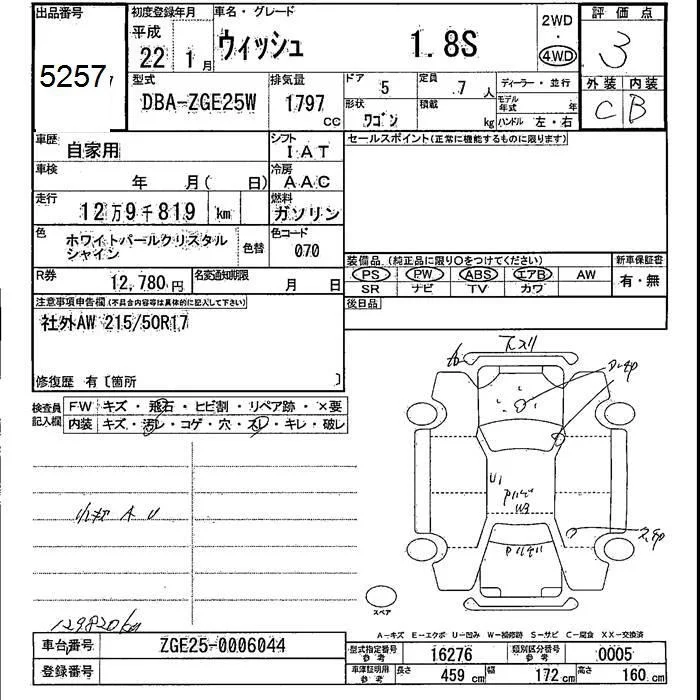 出品番号
5257
初度登録年月
平成
22 1月
車名・グレード
ウィッシュ 1.8S
2WD
・
4WD
評価点
3
外装 内装
C B
型式
DBA-ZGE25W
排気量
1797
cc
ドア
5
定員
7人
形状
ワゴン
積載
kg
ディーラー・並行
モデル年式 年
ハンドル 左・右
車歴
自家用
シフト
IAT
車検
年 月( 日)
冷房
AAC
走行
12万9千819 km
燃料
ガソリン
色
ホワイトパールクリスタル
シャイン
色替
色コード
070
R券
12,780円
名変通知期限
月 日
セールスポイント(正常に機能するものに限ります)
装備品(純正品に限り○をつけてください)
PS PW ABS エアB AW
SR ナビ TV カワ
新車保証書
有・無
後日品
注意事項申告欄(不具合内容等は具体的に記入して下さい)
社外AW 215/50R17
修復歴 有〔箇所 〕
検査員
記入欄
FW キズ・飛石・ヒビ割・リペア跡・×要
内装 キズ・汚レ・コゲ・穴・スレ・キレ・破レ
小キズ A U
129820km
U1
W3
スペア
A-キズ E-エクボ U-凹み W-補修跡 S-サビ C-腐食 XX-交換済
車台番号
ZGE25-0006044
登録番号
型式指定番号
参考
16276
類別区分番号
参考
0005
車庫証明用
参考
長さ
459 cm
幅
172 cm
高さ
160 cm